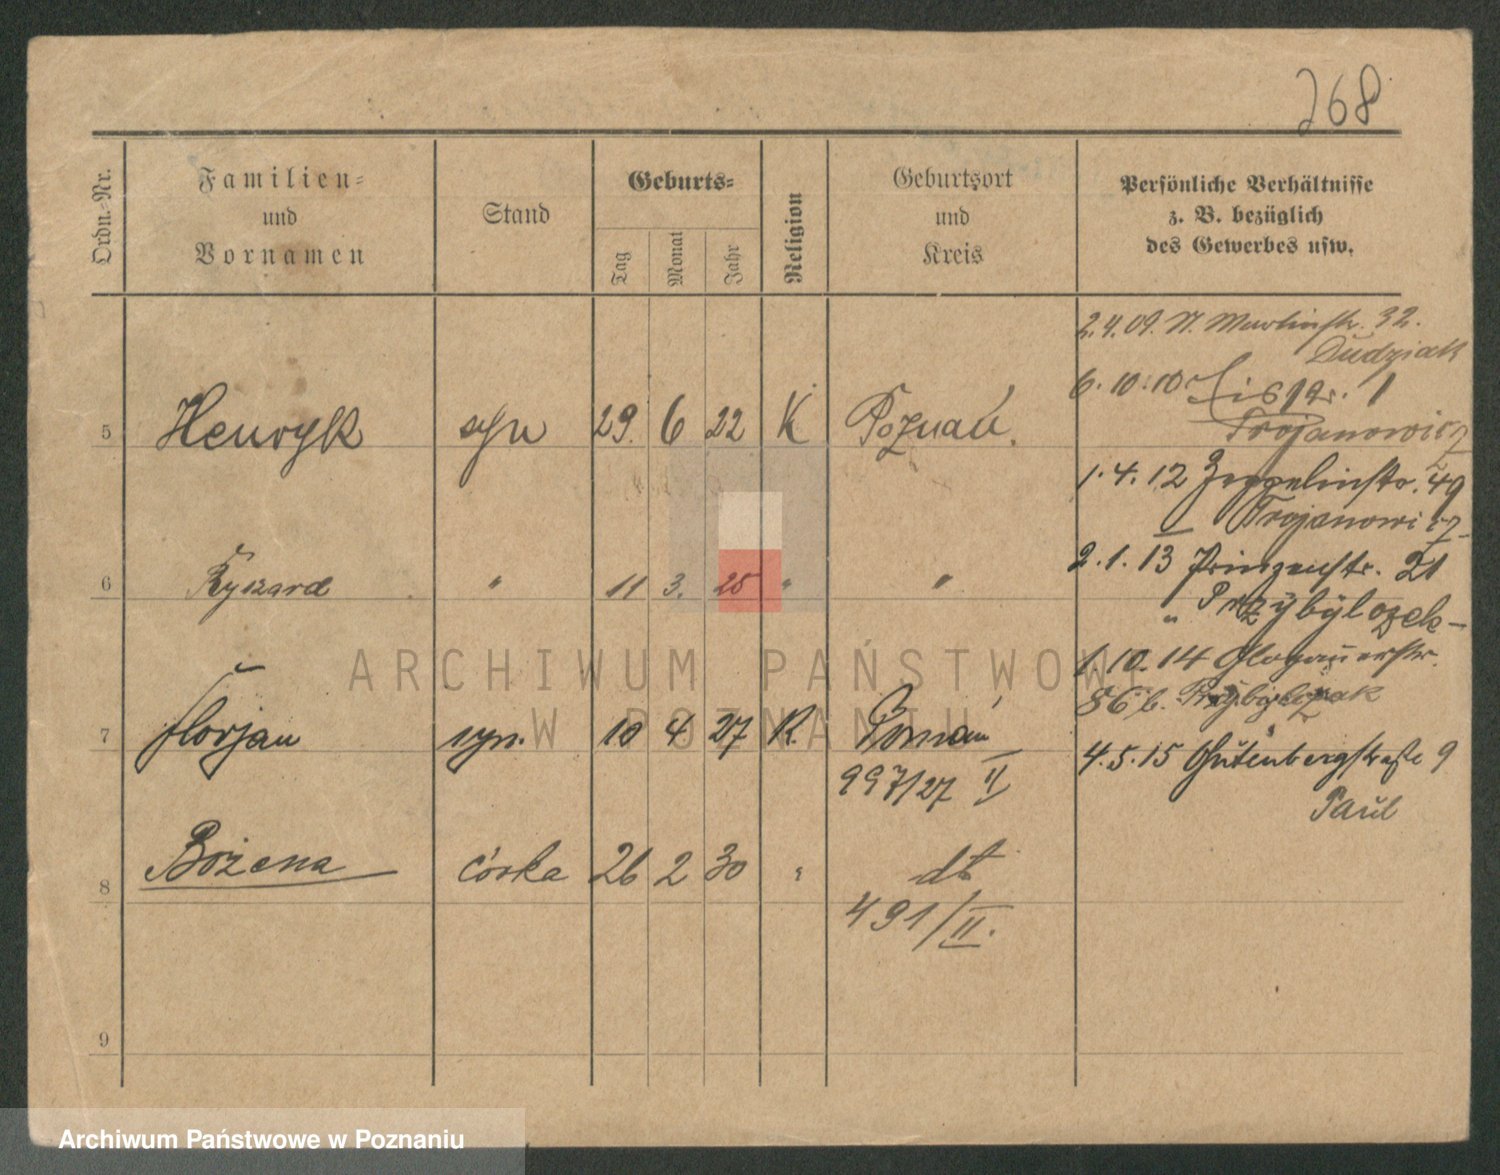 768
Ordn.-Nr.
Familien-
und
Vornamen
Stand
Geburts-
Tag
Monat
Jahr
Religion
Geburtsort
und
Kreis
Persönliche Verhältnisse
z. B. bezüglich
des Gewerbes usw.
2.4.09. Martinstr. 32.
Dudziak
6.10.10 1
Trojanowicz
1.4.12 Zeppelinstr. 49
Trojanowicz
2.1.13 Prinzenstr. 21
" Przybylczek
1.10.14 Glogauerstr.
86 b. Przybylczak
4.5.15 Gutenbergstraße 9
Paul
5 Henryk syn 29. 6 22 K Poznań.
6 Ryszard " 11 3. 25 " "
7 Florjan syn. 10 4 27 R. Poznań
997/27 II
8 Bożena córka 26 2 30 " dt
491/II.
9
ARCHIWUM PAŃSTWOWE
W POZNANIU
Archiwum Państwowe w Poznaniu